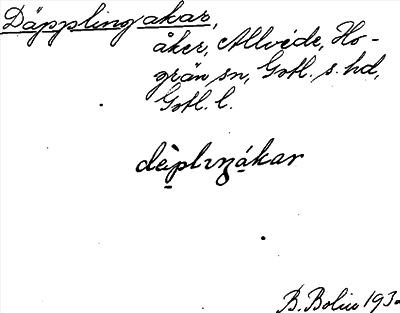 Däpplingakar,
åker, Allvéde, Ho-
grän sn, Gotl. s. hd,
Gotl. l.
dèplıŋákar
B. Bolin 193